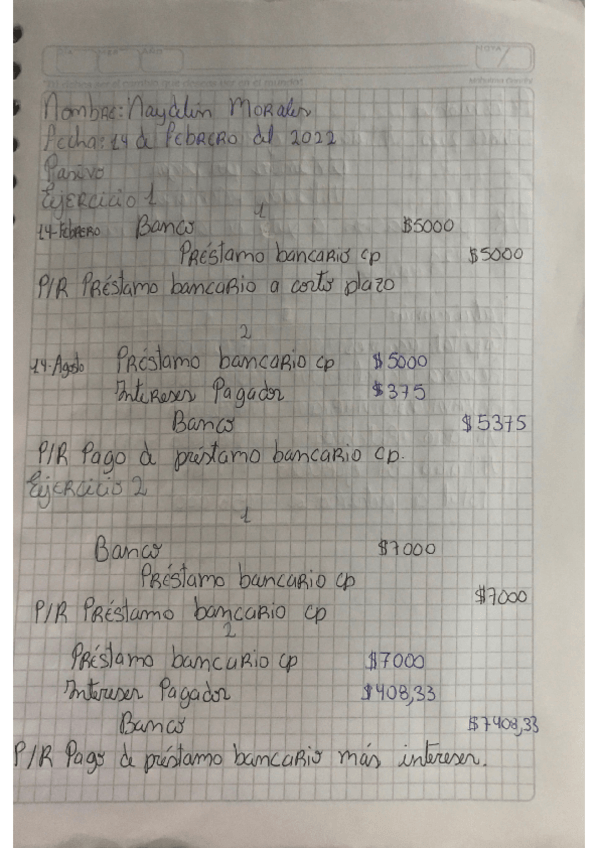 NOTA
Nombre: Naydelin Morales
Fecha: 14 de Febrero del 2022
Pasivo
Ejercicio 1
1
14-Febrero Banco $5000
Préstamo bancario cp $5000
P/R Préstamo bancario a corto plazo
2
14-Agosto Préstamo bancario cp $5000
Intereses Pagados $375
Banco $5375
P/R Pago de préstamo bancario cp.
Ejercicio 2
1
Banco $7000
Préstamo bancario cp $7000
P/R Préstamo bancario cp
2
Préstamo bancario cp $7000
Intereses Pagados $408,33
Banco $7408,33
P/R Pago de préstamo bancario más intereses.